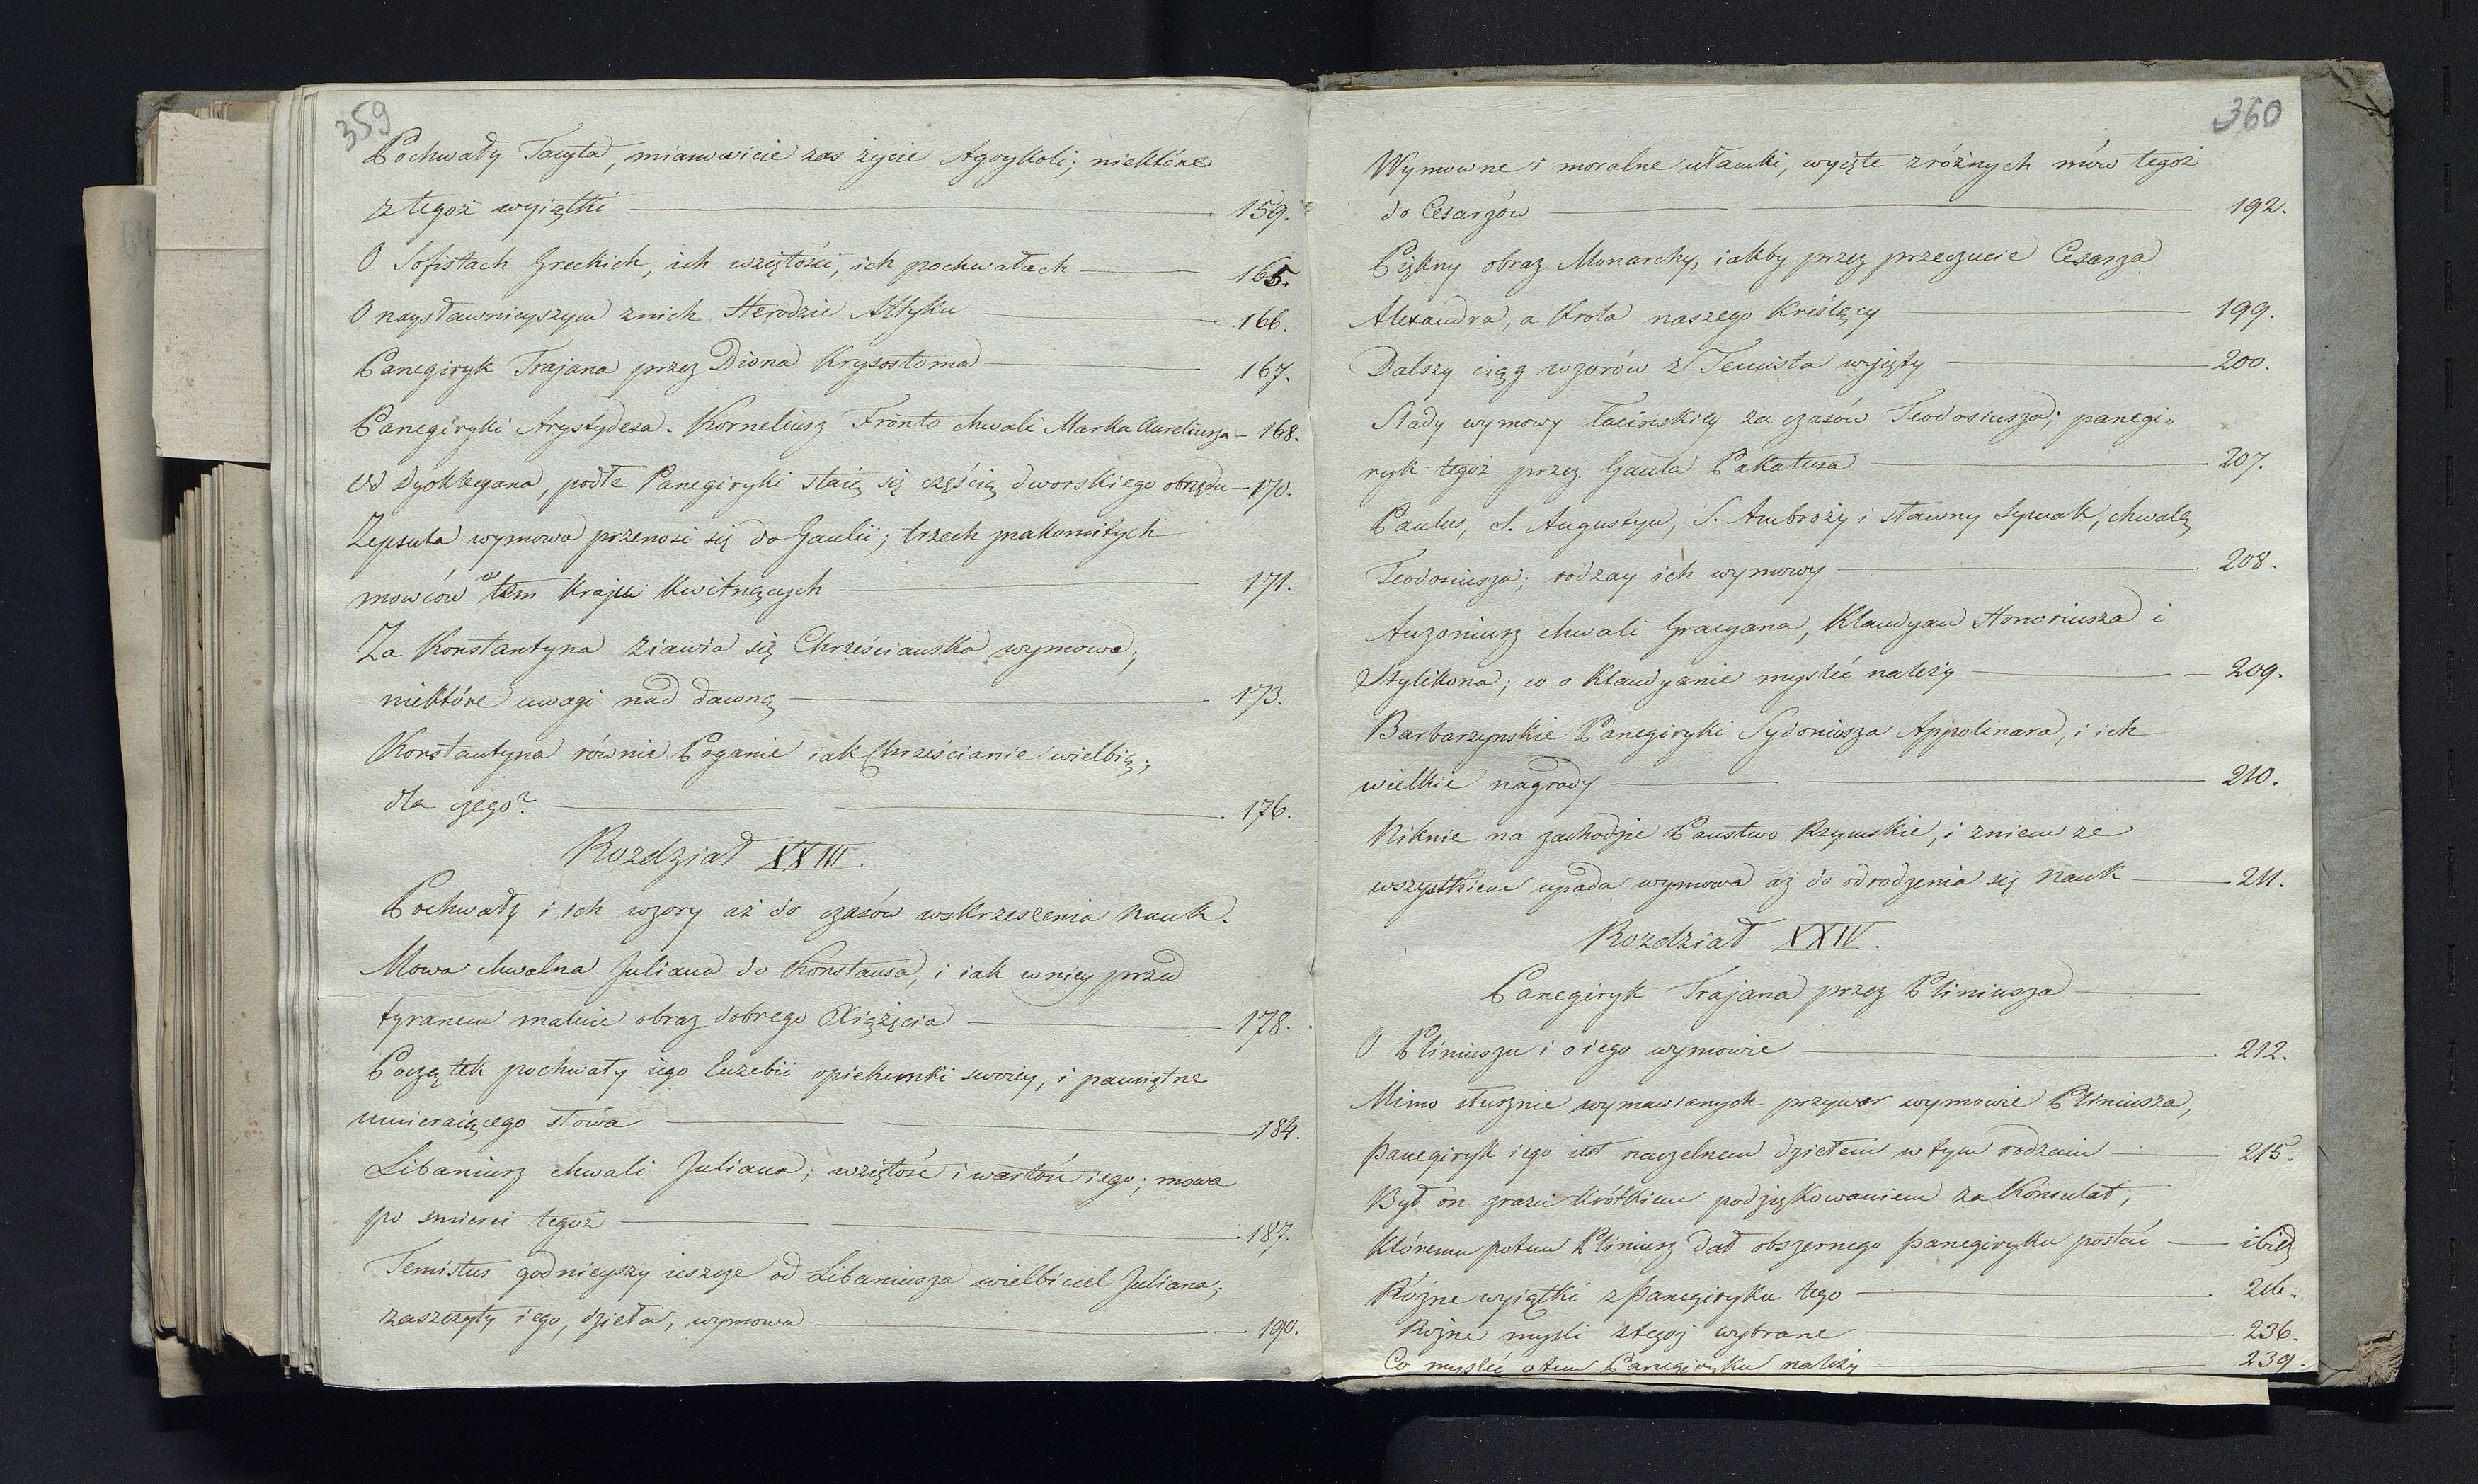 359
Pochwały Tacyta, mianowicie zas życie Agrykoli; niektóre
z tegoż wyiątki — 159.
O Sofistach Greckich, ich wziętości, ich pochwałach — 165.
O naysławnieyszym z nich Herodzie Attyku — 166.
Panegiryk Trajana przez Diona Krysostoma — 167.
Panegiryki Arystydesa. Korneliusz Fronto chwali Marka Aureliusza — 168.
Od Dyoklecyana, podłe Panegiryki staią się częścią dworskiego obrzędu — 170.
Zepsuta wymowa przenosi się do Gaulii; trzech znakomitych
mowców w tem kraju kwitnących — 171.
Za Konstantyna ziawia się Chrześcianska wymowa;
niektóre uwagi nad dawną — 173.
Konstantyna równie Poganie iak Chrześcianie wielbią;
dla czego? — 176.
Rozdział XXIII.
Pochwały i ich wzory aż do czasów wskrzeszenia nauk.
Mowa chwalna Juliana do Konstansa, i iak w niey przed
tyranem maluie obraz dobrego Xiążęcia — 178.
Początek pochwały iego Euzebii opiekunki swoiey, i pamiętne
umieraiącego słowa — 184.
Libaniusz chwali Juliana; wziętość i wartość iego; mowa
po smierci tegoż — 187.
Temistus godnieyszy ieszcze od Libaniusza wielbiciel Juliana;
zaszczyty iego, dzieła, wymowa — 190.
360
Wymowne i moralne ułamki, wyięte z różnych mów tegoż
do Cesarzów — 192.
Piękny obraz Monarchy, iakby przez przeczucie Cesarza
Alexandra, a Krola naszego kreślący — 199.
Dalszy ciąg wzorów z Temista wyięty — 200.
Slady wymowy łacinskiey za czasów Teodosiusza; panegi„
ryk tegoż przez Gaula Pakatusa — 207.
Paulus, S. Augustyn, S. Ambroży i sławny Symak, chwalą
Teodosiusza; rodzay ich wymowy — 208.
Auzoniusz chwali Gracyana, Klaudyan Honoriusza i
Stylikona; co o Klaudyanie myslić należy — 209.
Barbarzynskie Panegiryki Sydoniusza Appolinara, i ich
wielkie nagrody — 210.
Niknie na zachodzie Panstwo Rzymskie, i z niem ze
wszystkiem upada wymowa aż do odrodzenia się nauk — 211.
Rozdział XXIV.
Panegiryk Trajana przez Pliniusza —
O Pliniuszu i o iego wymowie — 212.
Mimo słusznie wymawianych przywar wymowie Pliniusza,
panegiryk iego iest naczelnem dziełem w tym rodzaiu — 215.
Był on zrazu krótkiem podziękowaniem za Konsulat,
któremu potem Pliniusz dał obszernego panegiryku postać — ibid
Różne wyiątki z panegiryku tego — 216.
Rożne mysli z tegoż wybrane — 236.
Co myslić o tem Panegiryku należy — 239.